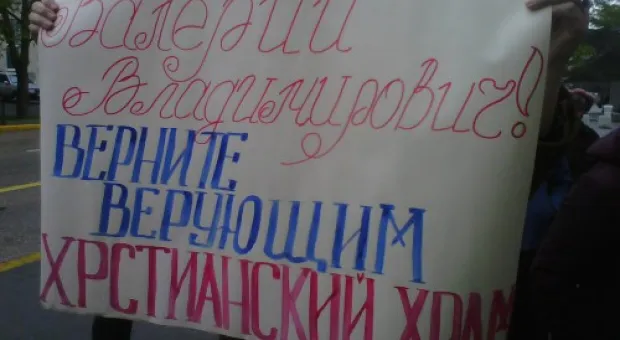 Валерий
Владимирович!
ВЕРНИТЕ
ВЕРУЮЩИМ
ХРСТИАНСКИЙ ХРАМ